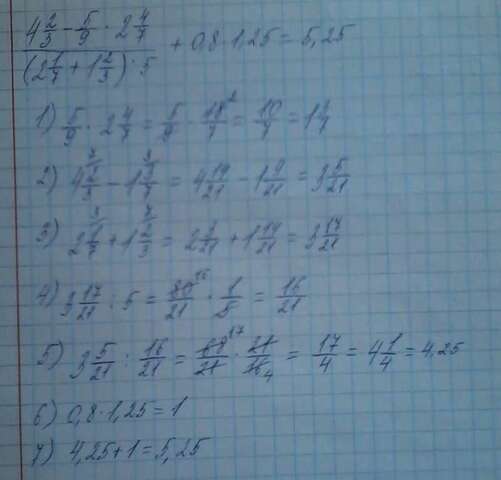 4 2/3 − 5/9 · 2 4/7
(2 1/7 + 1 2/3) : 5
+ 0,8 · 1,25 = 5,25
1) 5/9 · 2 4/7 = 5/9 · 18/7 2 = 10/7 = 1 3/7
2) 4 2/3 − 1 3/7 = 4 14/21 − 1 9/21 = 3 5/21
3) 2 1/7 + 1 2/3 = 2 3/21 + 1 14/21 = 3 17/21
4) 3 17/21 : 5 = 80/21 16 · 1/5 = 16/21
5) 3 5/21 : 16/21 = 68/21 17 · 21/16 4 = 17/4 = 4 1/4 = 4,25
6) 0,8 · 1,25 = 1
7) 4,25 + 1 = 5,25